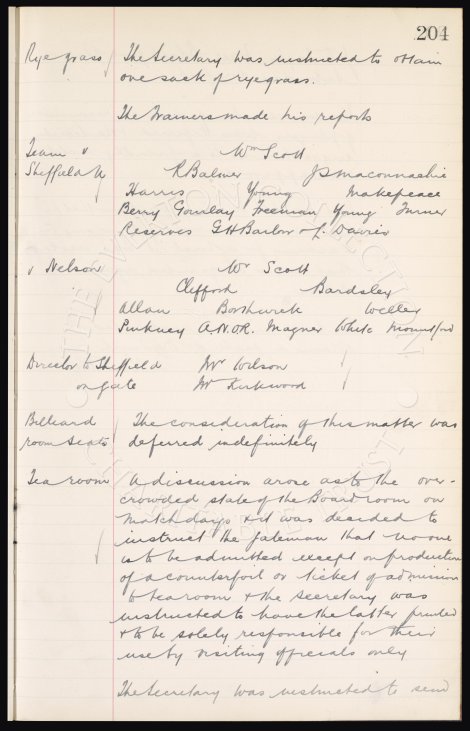 204
Ryegrass The Secretary was instructed to obtain
one sack of ryegrass.
The Trainers made his reports
Team v Wm Scott
Sheffield U R Balmer J S Maconnachie
Harris Young Makepeace
Berry Gourlay Freeman Young Turner
Reserves G H Barlow & L. Davies
v Nelson Wr Scott
Clifford Bardsley
Allan Borthwick Welley
Pinkney A.N.OR. Magner White Mountford
Director to Sheffield Mr Wilson
on gate Mr Kirkwood
Billiard The consideration of this matter was
room seats deferred indefinitely
Tea room A discussion arose as to the over-
crowded state of the Board room on
match days & it was decided to
instruct the gateman that no one
is to be admitted except on production
of a counterfoil or ticket of admission
to tea room & the Secretary was
instructed to have the latter printed
& to be solely responsible for their
use by visiting officials only
The Secretary was instructed to send